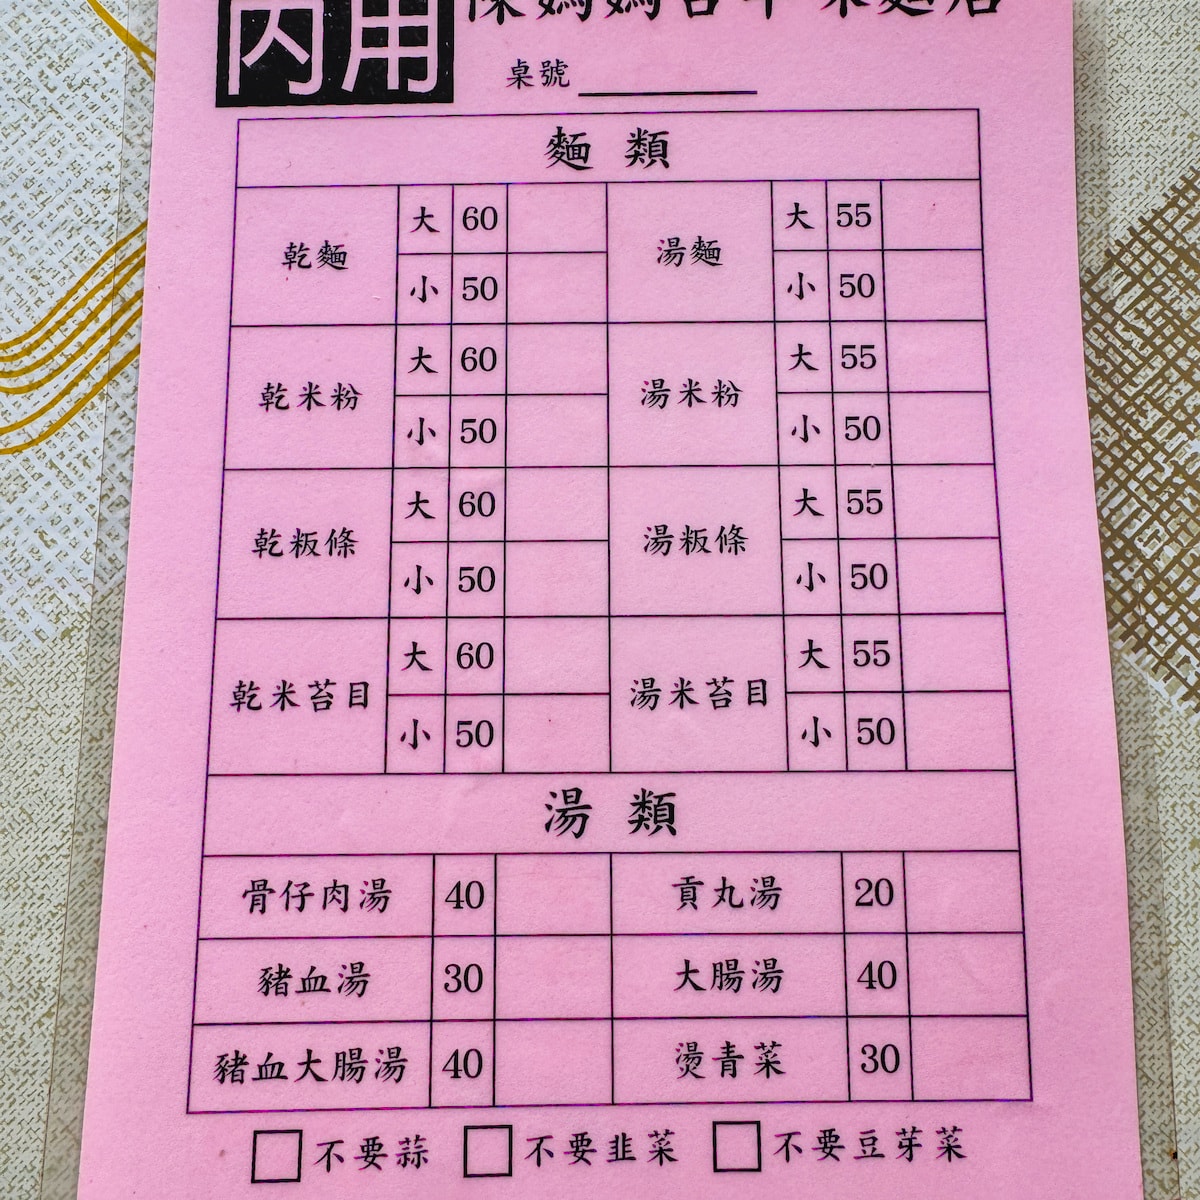 內用
陳媽媽
桌號
麵類
乾麵 大 60 湯麵 大 55
小 50 小 50
乾米粉 大 60 湯米粉 大 55
小 50 小 50
乾粄條 大 60 湯粄條 大 55
小 50 小 50
乾米苔目 大 60 湯米苔目 大 55
小 50 小 50
湯類
骨仔肉湯 40 貢丸湯 20
豬血湯 30 大腸湯 40
豬血大腸湯 40 燙青菜 30
不要蒜 不要韭菜 不要豆芽菜